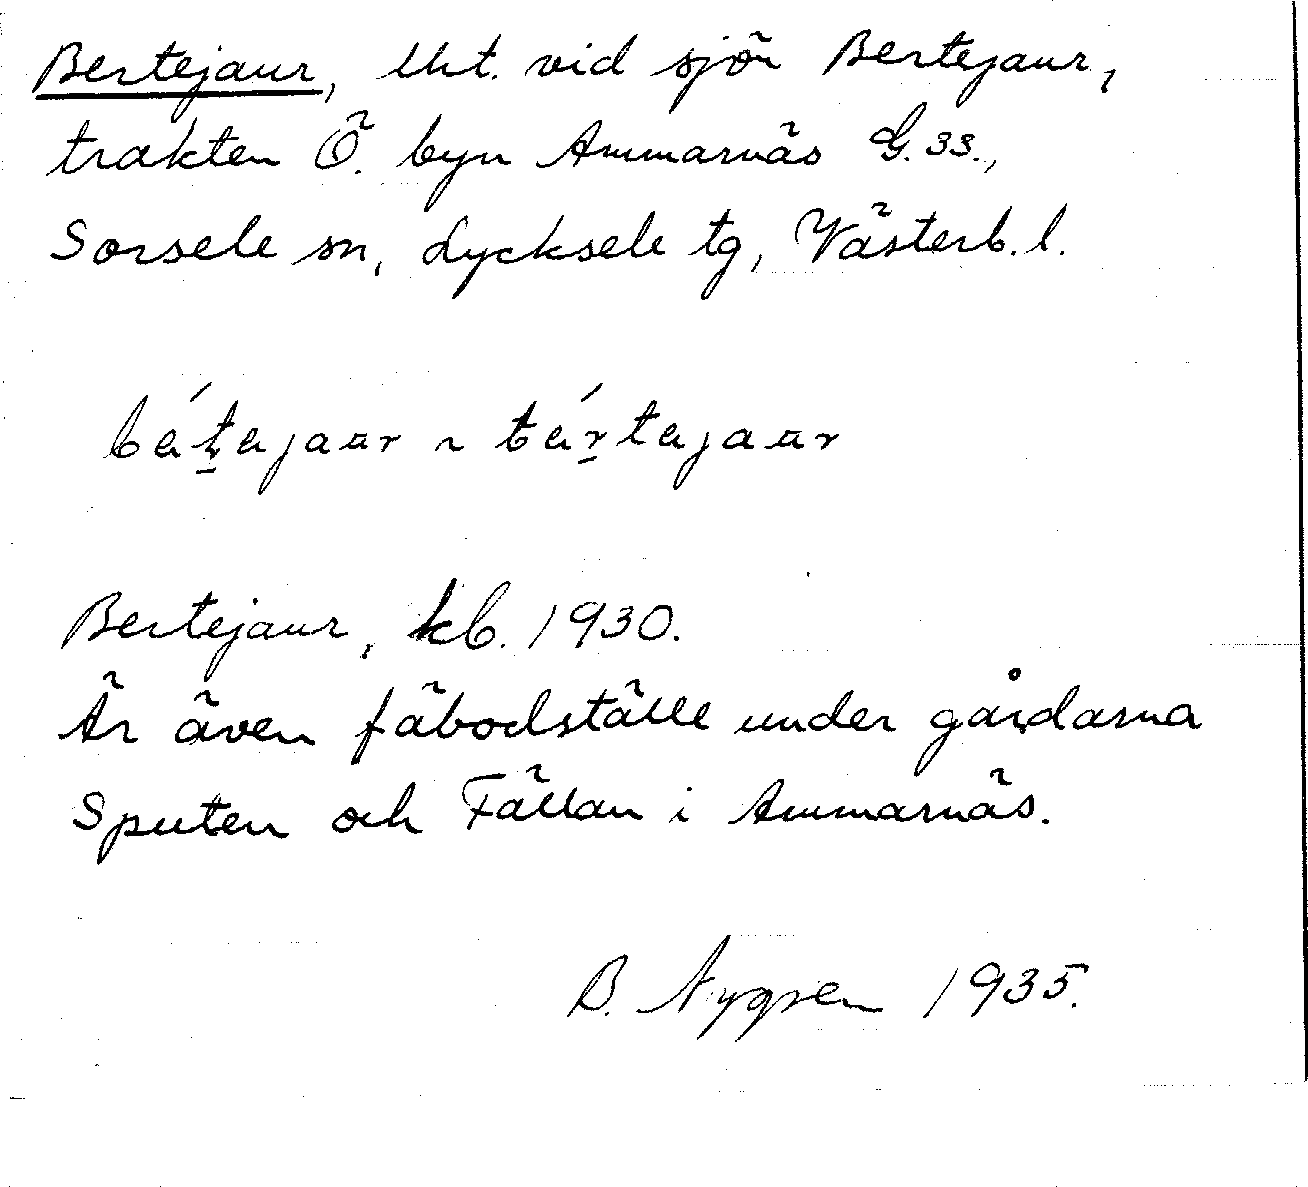 Bertejaur, lht. vid sjön Bertejaur,
trakten Ö. byn Ammarnäs G. 33.,
Sorsele sn, Lycksele tg, Västerb. l.
Bertejaur, kb. 1930.
Är även fäbodställe under gårdarna
Sputen och Fällan i Ammarnäs.
B. Nygren 1935.